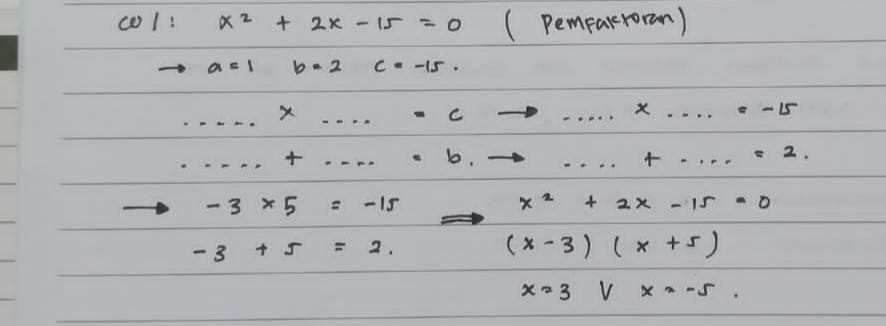 co/: x² + 2x - 15 = 0 ( Pemfaktoran)
→ a = 1 b = 2 c = -15.
..... x .... = c → ..... x .... = -15
..... + .... = b. → .... + .... = 2.
→ -3 x 5 = -15 ⇒ x² + 2x - 15 = 0
-3 + 5 = 2. (x - 3) ( x + 5)
x = 3 V x = -5 .